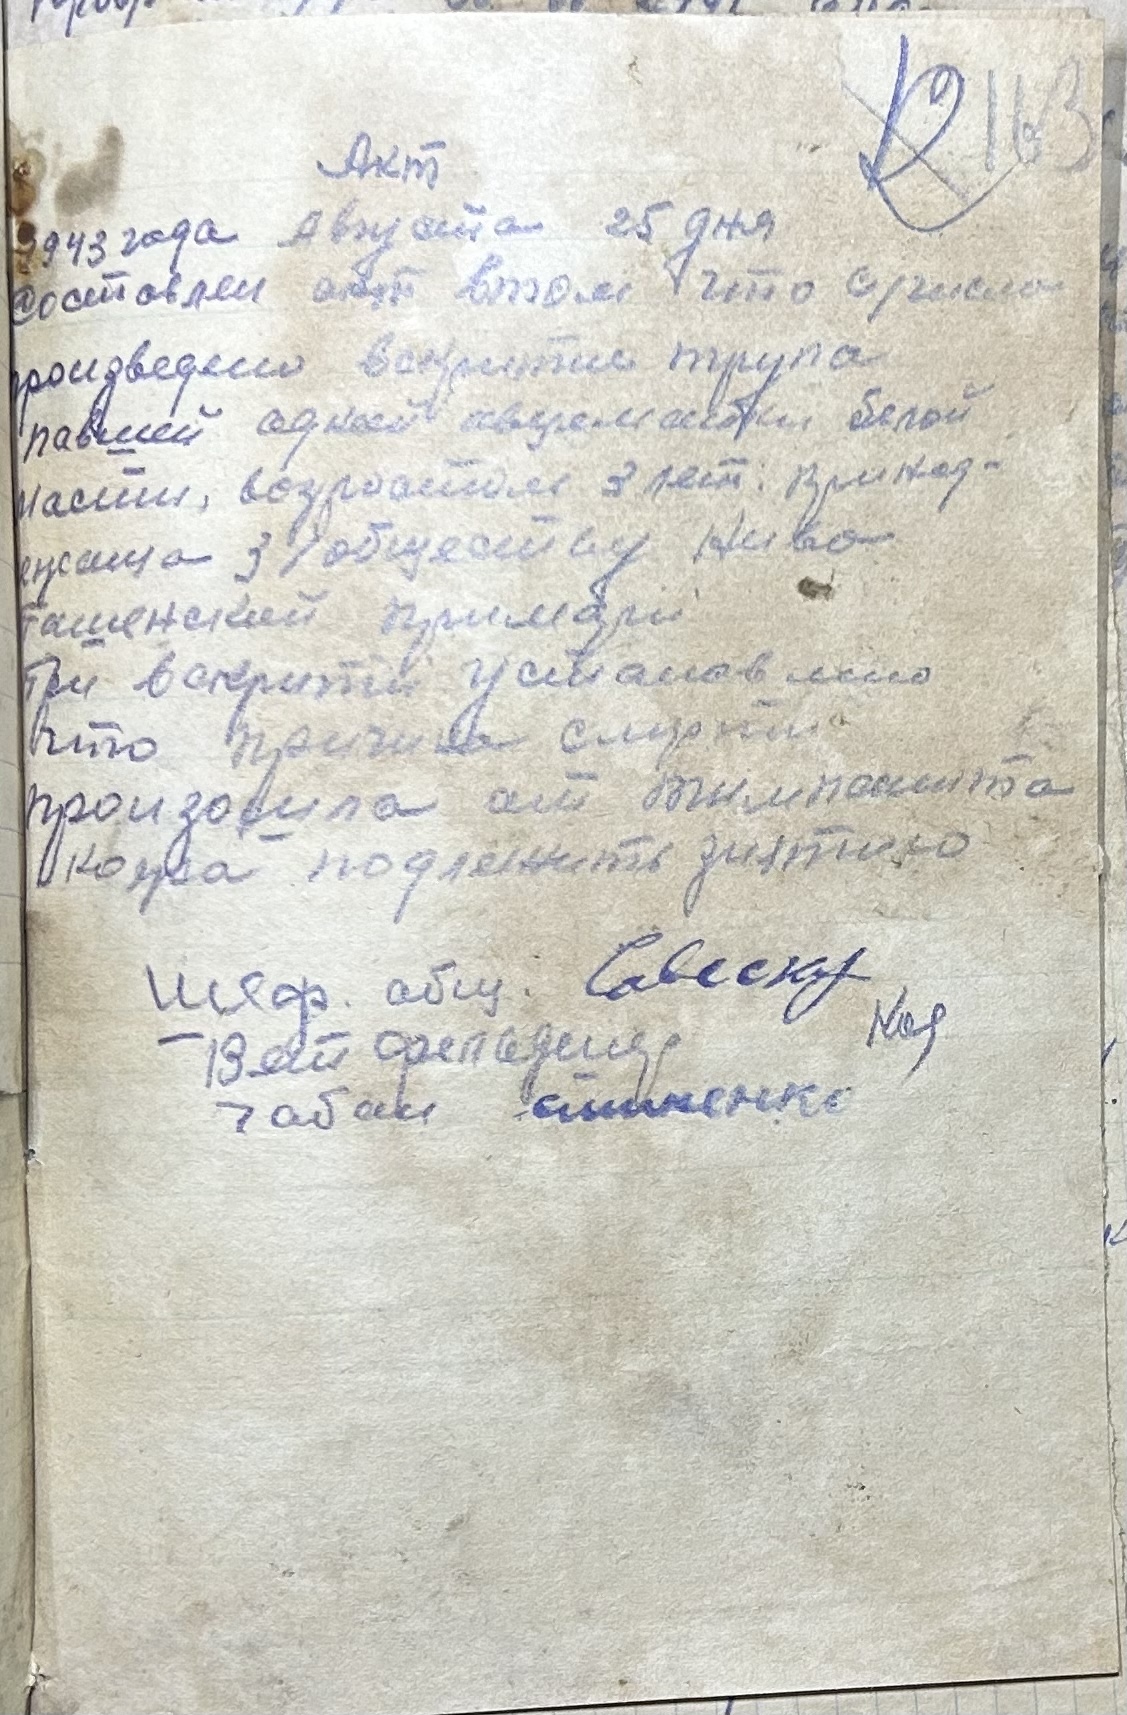 163
Акт
1943 года Августа 25 дня
составлен акт втом что с/число
произведено вскрытие трупа
павшей одной авцематки белой
масти, возростом 3 лет. принод-
ежаща 3/обществу Ново
ташенской примарii
При вскритii установлено
что причина смертi
произошла от тимпанита
кожа подлежить зняттю
Шеф. общ. Савеску
Вет фельдшер
Чабан